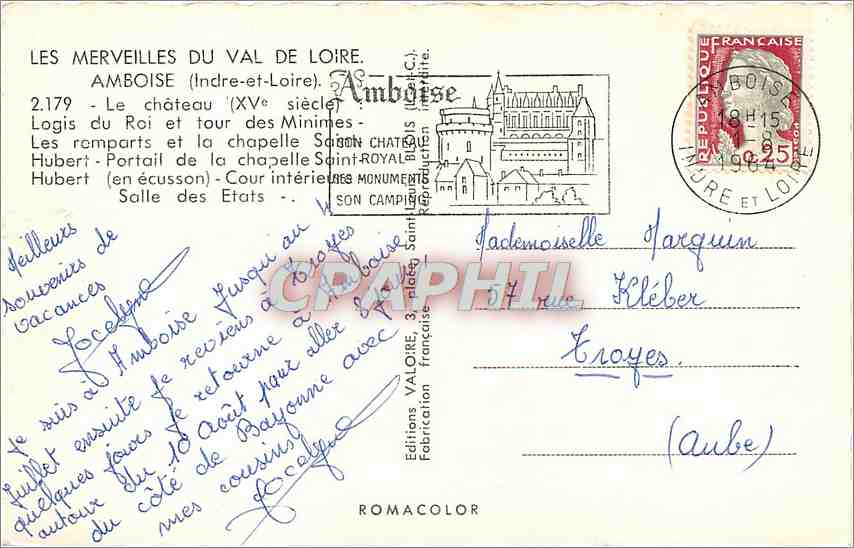 LES MERVEILLES DU VAL DE LOIRE.
AMBOISE (Indre-et-Loire).
2.179 - Le château (XVe siècle)
Logis du Roi et tour des Minimes -
Les remparts et la chapelle Saint-
Hubert - Portail de la chapelle Saint-
Hubert (en écusson) - Cour intérieure
Salle des Etats -.
Amboise
SON CHATEAU
ROYAL
SES MONUMENTS
SON CAMPING
REPUBLIQUE FRANÇAISE
0,25
AMBOISE
18H15
-8
1964
INDRE ET LOIRE
Meilleurs
souvenirs de
vacances
Jocelyne
Je suis à Amboise jusqu'au
Juillet ensuite je reviens à Troyes
quelques jours je retourne à Amboise
autour du 10 Août pour aller
du côté de Bayonne avec
mes cousins
Jocelyne
Editions VALOIRE, 3, place Saint-Louis, BLOIS (L.-et-C.).
Fabrication française - Reproduction interdite.
Mademoiselle Marquin
57 rue Kléber
Troyes.
(Aube)
CPAPHIL
ROMACOLOR